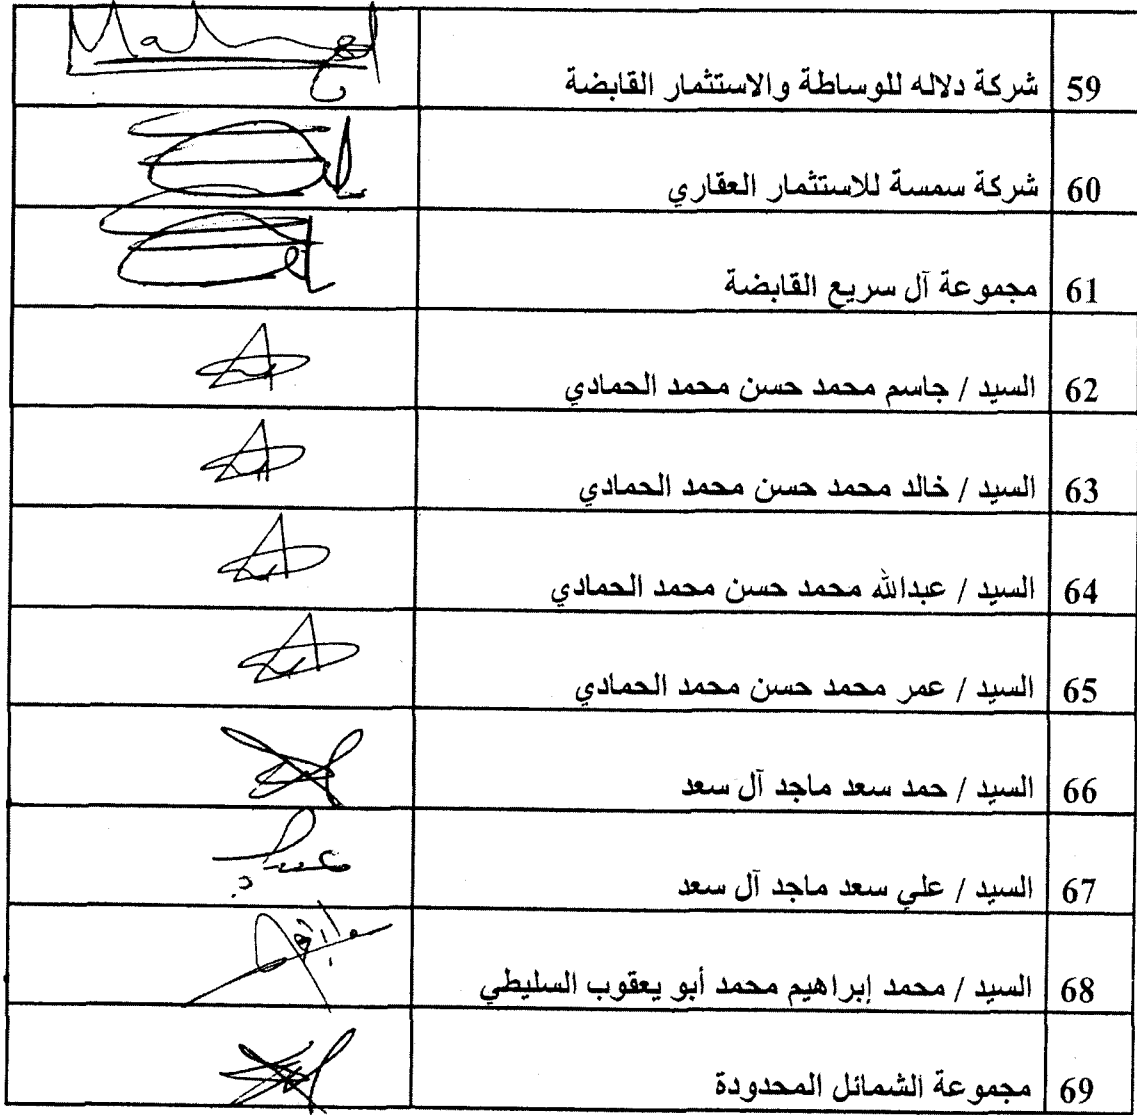 59 شركة دلاله للوساطة والاستثمار القابضة
60 شركة سمسة للاستثمار العقاري
61 مجموعة آل سريع القابضة
62 السيد / جاسم محمد حسن محمد الحمادي
63 السيد / خالد محمد حسن محمد الحمادي
64 السيد / عبدالله محمد حسن محمد الحمادي
65 السيد / عمر محمد حسن محمد الحمادي
66 السيد / حمد سعد ماجد آل سعد
67 السيد / علي سعد ماجد آل سعد
68 السيد / محمد إبراهيم محمد أبو يعقوب السليطي
69 مجموعة الشمائل المحدودة